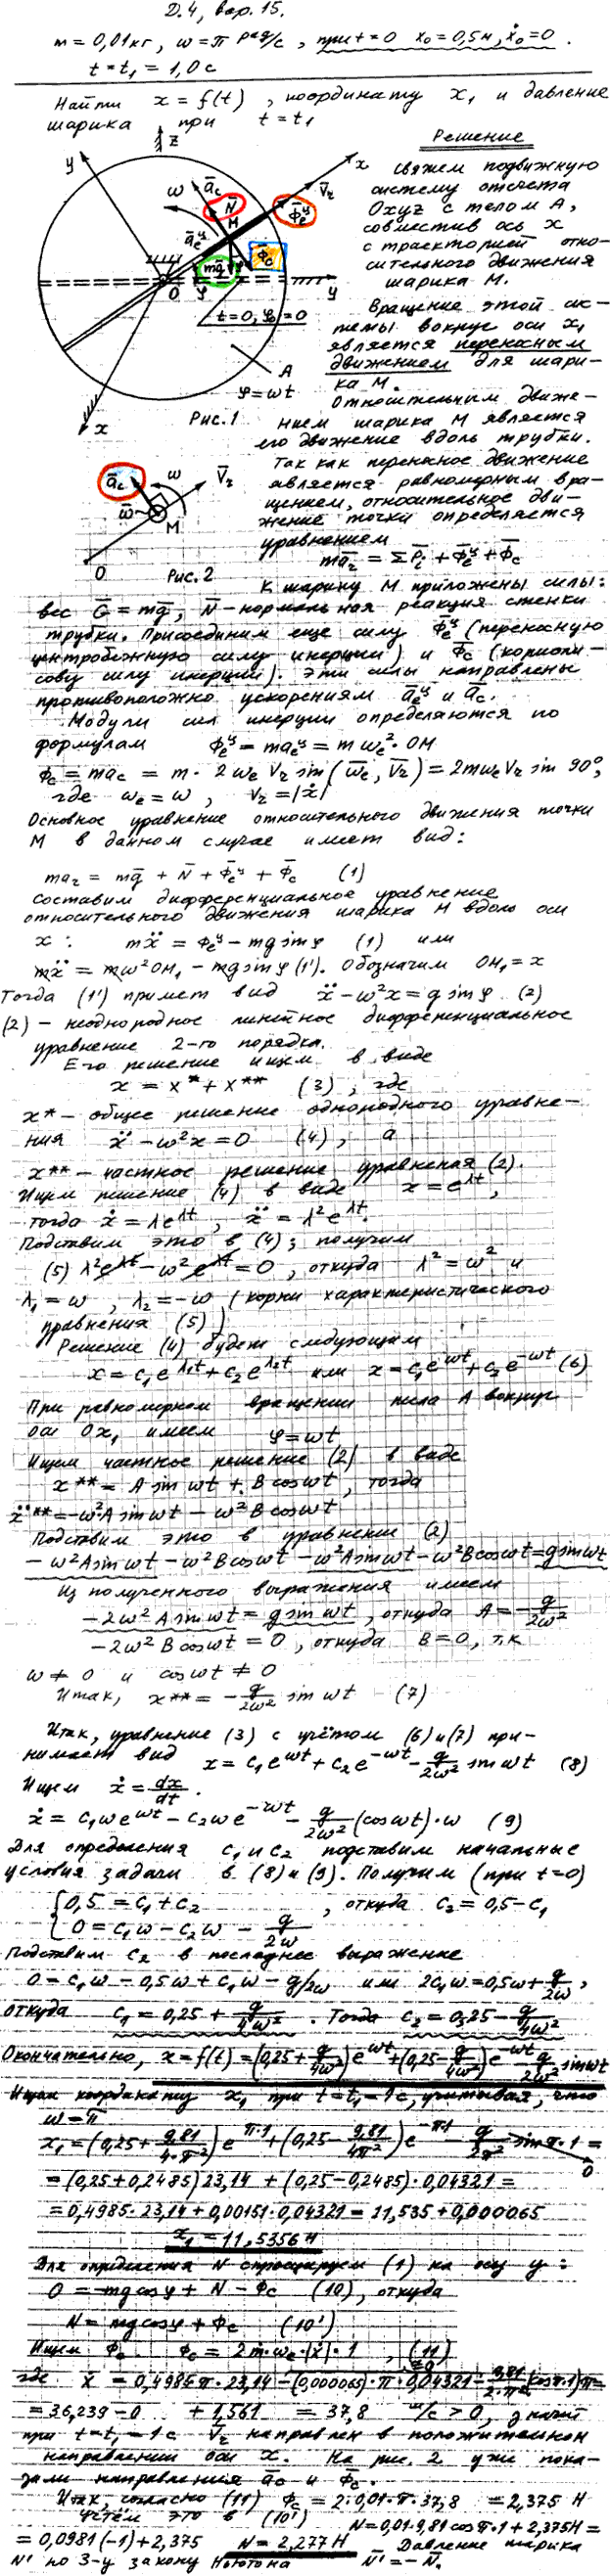 Д.4, вар. 15.
m = 0,01 кг, ω = π рад/с, при t = 0 x₀ = 0,5 м, ẋ₀ = 0.
t = t₁ = 1,0 с
Найти x = f(t), координату x₁ и давление
шарика при t = t₁
Решение
Свяжем подвижную
систему отсчета
Oxyz с телом A,
совместив ось x
с траекторией отно-
сительного движения
шарика M.
Вращение этой сис-
темы вокруг оси x₁
является переносным
движением для шари-
ка M.
Относительным движе-
нием шарика M является
его движение вдоль трубки.
z
y
ω
a̅c
N̅
M
V̅r
x
Φ̅eц
a̅eц
mg̅
Φ̅c
O
φ
y
t=0, φ₀=0
A
φ = ωt
x
Рис. 1
Так как переносное движение
является равномерным вра-
щением, относительное дви-
жение точки определяется
уравнением
ma̅r = ΣP̅i + Φ̅eц + Φ̅c
a̅c
ω
V̅r
ω̅
M
O
Рис. 2
К шарику M приложены силы:
вес G̅ = mg̅, N̅ – нормальная реакция стенки
трубки. Присоединим еще силу Φ̅eц (переносную
центробежную силу инерции) и Φ̅c (кориоли-
сову силу инерции). Эти силы направлены
противоположно ускорениям a̅eц и a̅c.
Модули сил инерции определяются по
формулам Φeц = maeц = mωe²·OM
Φc = mac = m·2ωeVr sin(ω̅e, V̅r) = 2mωeVr sin 90°,
где ωe = ω, Vr = |ẋ|
Основное уравнение относительного движения точки
M в данном случае имеет вид:
mar = mg̅ + N̅ + Φ̅eц + Φ̅c (1)
Составим дифференциальное уравнение
относительного движения шарика M вдоль оси
x: mẍ = Φeц – mg sinφ (1) или
mẍ = mω²OM₁ – mg sinφ (1'). Обозначим OM₁ = x
Тогда (1') примет вид ẍ – ω²x = g sinφ (2)
(2) – неоднородное линейное дифференциальное
уравнение 2-го порядка.
Его решение ищем в виде
x = x* + x** (3), где
x* – общее решение однородного уравне-
ния ẍ – ω²x = 0 (4), а
x** – частное решение уравнения (2).
Ищем решение (4) в виде x = e^λt,
тогда ẋ = λe^λt, ẍ = λ²e^λt.
Подставим это в (4); получим
(5) λ²e^λt – ω²e^λt = 0, откуда λ² = ω² и
λ₁ = ω, λ₂ = –ω (корни характеристического
уравнения (5))
Решение (4) будет следующим
x = c₁e^λ₁t + c₂e^λ₂t или x = c₁e^ωt + c₂e^–ωt (6)
При равномерном вращении тела A вокруг
оси Ox₁ имеем φ = ωt
Ищем частное решение (2) в виде
x** = A sin ωt + B cos ωt, тогда
ẍ** = –ω²A sin ωt – ω²B cos ωt
Подставим это в уравнение (2)
–ω²A sin ωt – ω²B cos ωt – ω²A sin ωt – ω²B cos ωt = g sin ωt
Из полученного выражения имеем
–2ω²A sin ωt = g sin ωt, откуда A = –g/2ω²
–2ω²B cos ωt = 0, откуда B = 0, т.к.
ω ≠ 0 и cos ωt ≠ 0
Итак, x** = –g/2ω² sin ωt (7)
Итак, уравнение (3) с учётом (6) и (7) при-
нимает вид x = c₁e^ωt + c₂e^–ωt – g/2ω² sin ωt (8)
Ищем ẋ = dx/dt.
ẋ = c₁ωe^ωt – c₂ωe^–ωt – g/2ω² (cos ωt)·ω (9)
Для определения c₁ и c₂ подставим начальные
условия задачи в (8) и (9). Получим (при t=0)
{0,5 = c₁ + c₂, откуда c₂ = 0,5 – c₁
{0 = c₁ω – c₂ω – g/2ω
Подставим c₂ в последнее выражение
0 = c₁ω – 0,5ω + c₁ω – g/2ω или 2c₁ω = 0,5ω + g/2ω,
откуда c₁ = 0,25 + g/4ω². Тогда c₂ = 0,25 – g/4ω²
Окончательно, x = f(t) = (0,25 + g/4ω²)e^ωt + (0,25 – g/4ω²)e^–ωt – g/2ω² sin ωt
Ищем координату x₁ при t = t₁ = 1 с, учитывая, что
ω = π
x₁ = (0,25 + 9,81/4·π²)e^π·1 + (0,25 – 9,81/4π²)e^–π·1 – g/2π² sin π·1 =
0
= (0,25 + 0,2485) 23,14 + (0,25 – 0,2485)·0,04321 =
= 0,4985·23,14 + 0,00151·0,04321 = 11,535 + 0,000065
x₁ = 11,5356 м
Для определения N спроецируем (1) на ось y:
0 = –mg cosφ + N – Φc (10), откуда
N = mg cosφ + Φc (10')
Ищем Φc. Φc = 2m·ωe·|ẋ|·1, (11)
где ẋ = 0,4985π·23,14 – (0,000065)·π·0,04321 – 9,81/2·π² (cos π·1)π =
= 36,239 – 0 + 1,561 = 37,8 м/с > 0, значит
при t = t₁ = 1 с V̅r направлен в положительном
направлении оси x. На рис. 2 уже пока-
зали направления a̅c и Φ̅c.
Итак, согласно (11) Φc = 2·0,01·π·37,8 = 2,375 Н
Учтём это в (10') N = 0,01·9,81 cos π·1 + 2,375 Н =
= 0,0981(–1) + 2,375 N = 2,277 Н Давление шарика
N' по 3-у закону Ньютона N̅' = –N̅.